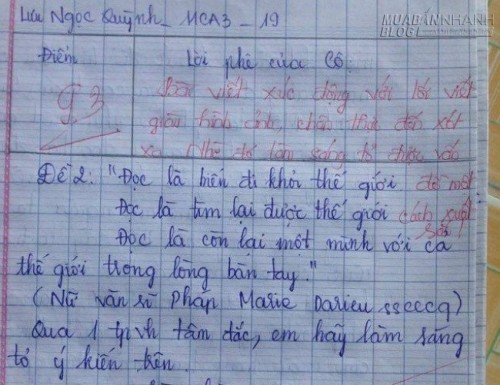 Lưu Ngọc Quỳnh _ MCA3 - 19
MUABÁNNHANH
BLOG
Điểm
Lời phê của Cô:
Bài viết xúc động với lối viết
giàu hình ảnh, chân thực đến xót
xa. Nhờ đó làm sáng tỏ được vấn
đề một
cách xuất
sắc
Đề 2: "Đọc là biến đi khỏi thế giới
Đọc là tìm lại được thế giới
Đọc là còn lại một mình với cả
thế giới trong lòng bàn tay."
(Nữ văn sĩ Pháp Marie Darieu sseccq)
Qua 1 tpvh tâm đắc, em hãy làm sáng
tỏ ý kiến trên.